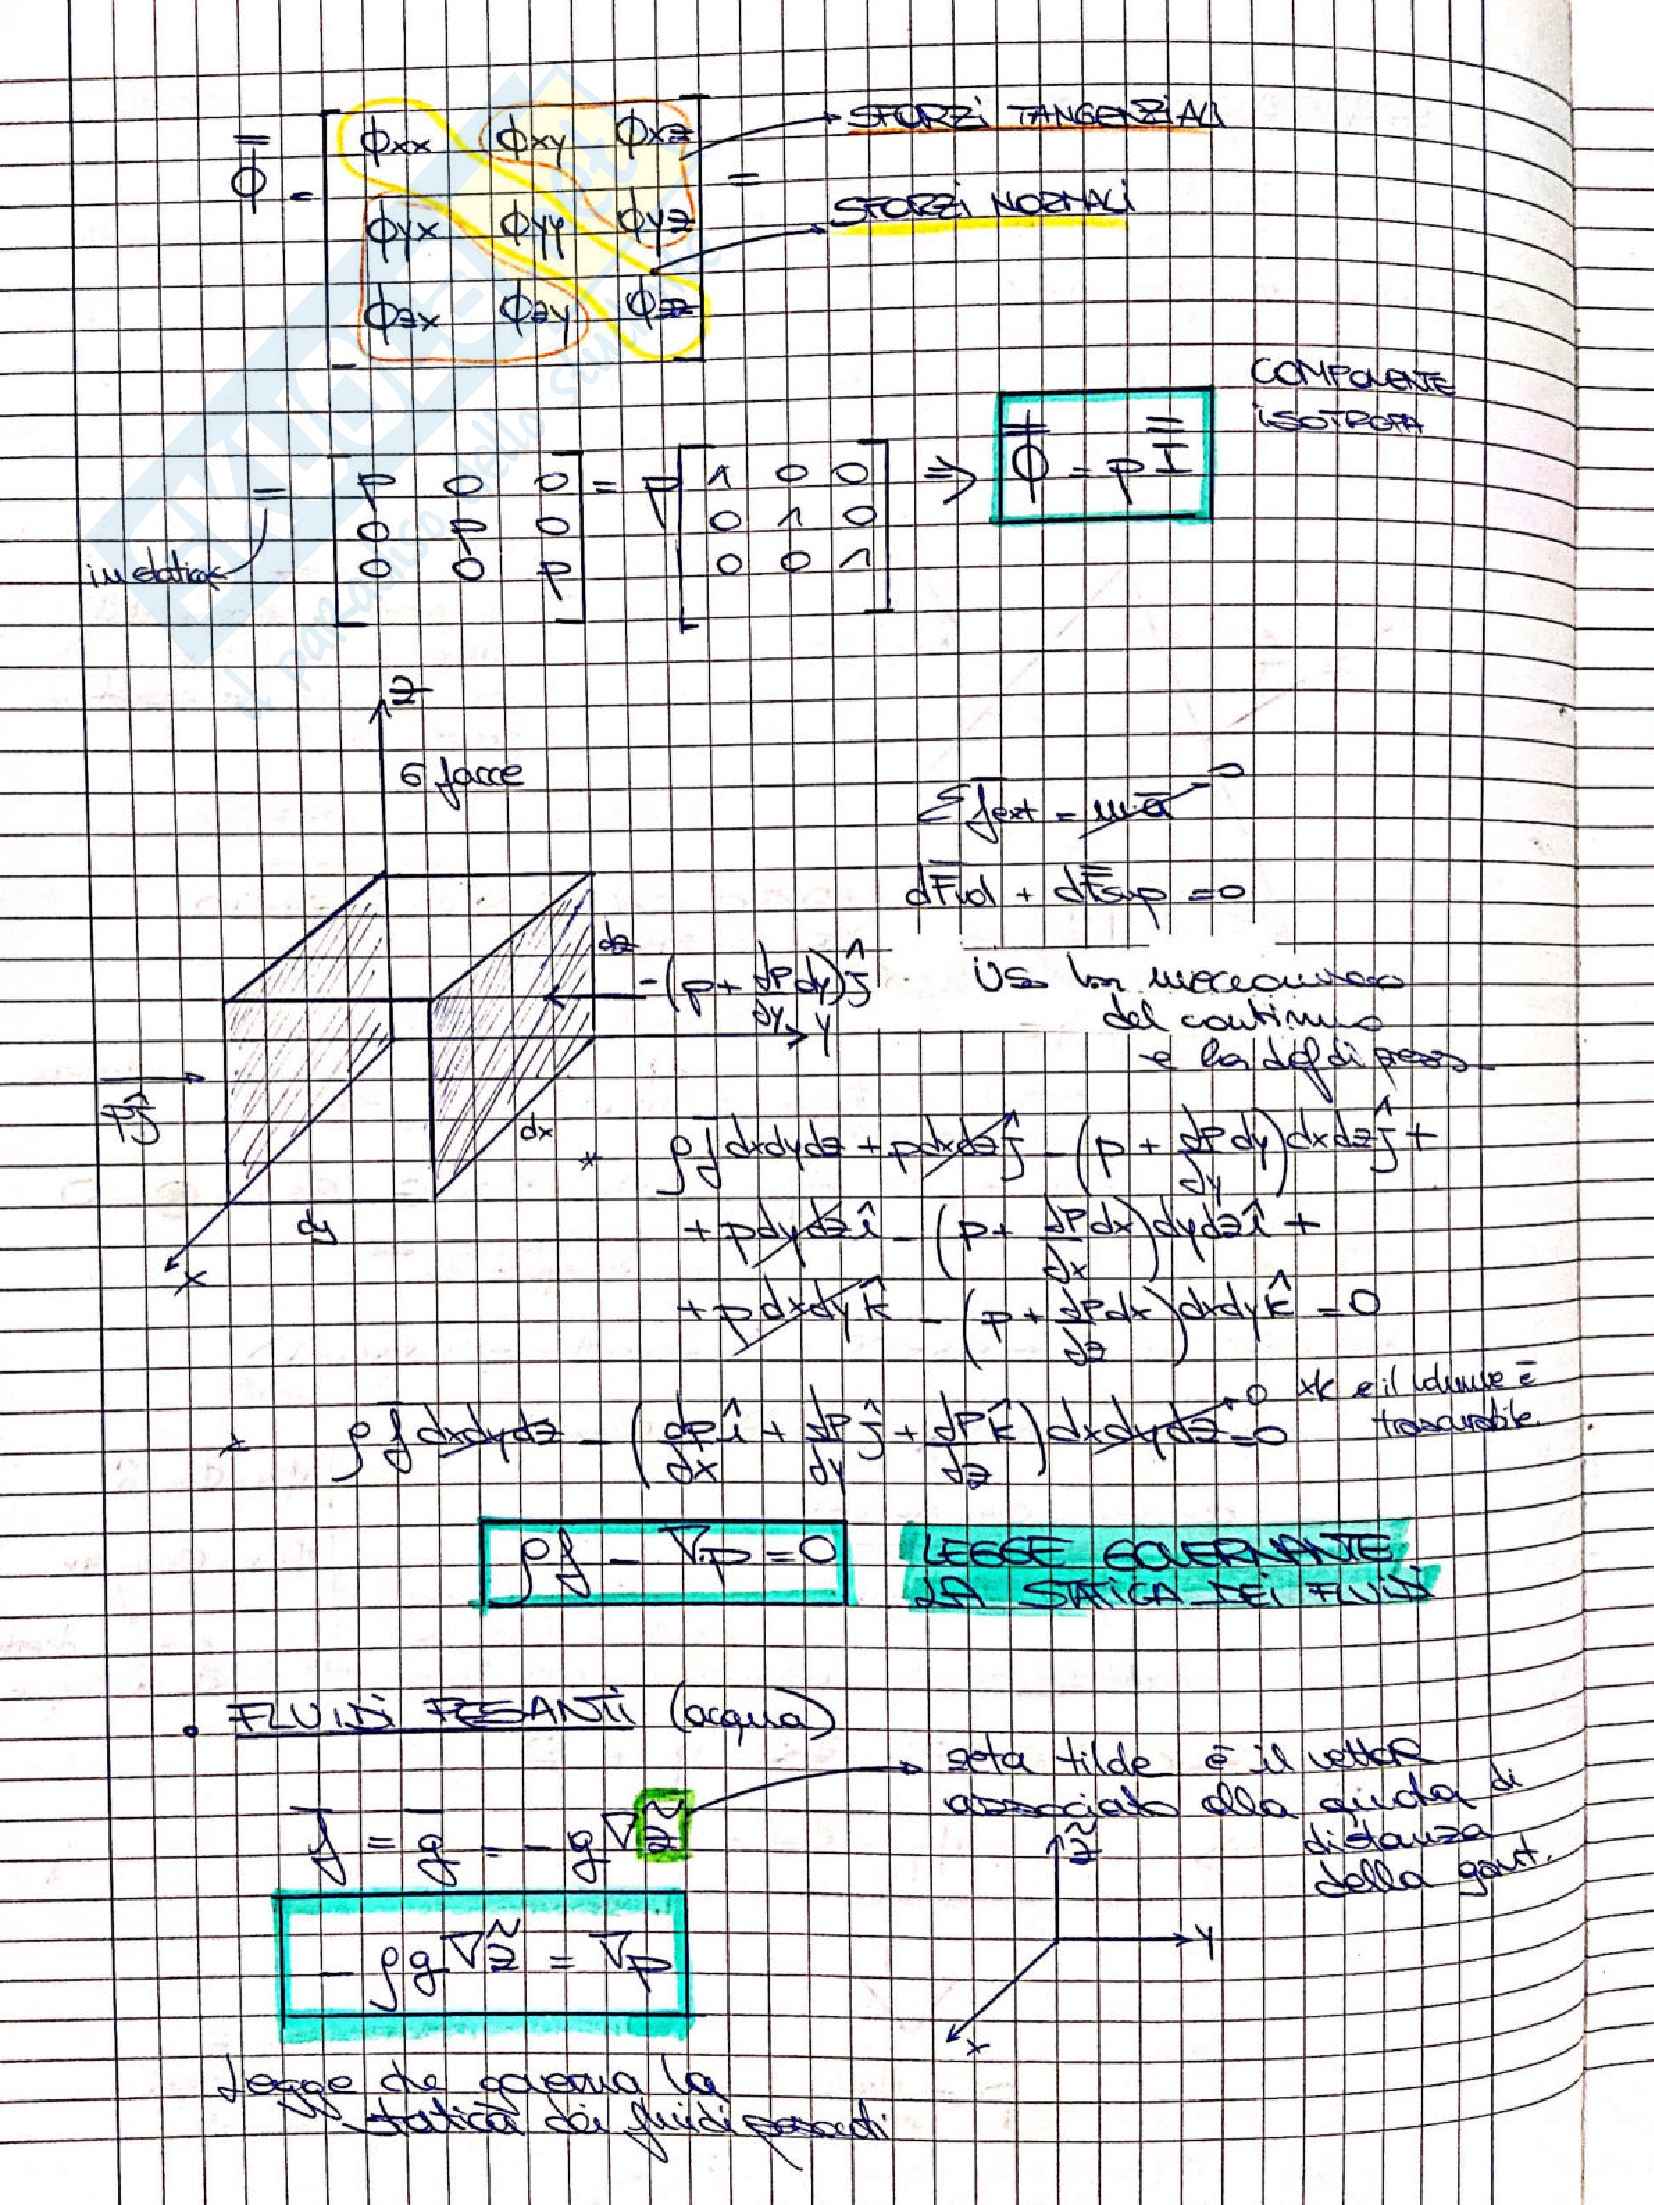 Φ̿ = [ φxx φxy φxz
φyx φyy φyz
φzx φzy φzz ] =
SFORZI TANGENZIALI
SFORZI NORMALI
= [ p 0 0
0 p 0
0 0 p ] = p [ 1 0 0
0 1 0
0 0 1 ] ⇒ Φ̿ = p I̿
in statica
COMPONENTE
ISOTROPA
z
6 facce
Σ f̄ext = m ā → 0
dF̄vol + dF̄sup = 0
dz
-(p + dP/dy dy) ĵ
y
US la meccanica
del continuo
e la def di press
p ĵ
dx
dy
x
* ρ f̄ dxdydz + p dxdz ĵ - (p + dP/dy dy) dxdz ĵ +
+ p dydz î - (p + dP/dx dx) dydz î +
+ p dxdy k̂ - (p + dP/dz dx) dxdy k̂ = 0
* ρ f̄ dxdydz - (dp/dx î + dP/dy ĵ + dP/dz k̂) dxdydz = 0
→ 0 xk e il volume è
trascurabile
ρf - ∇p = 0
LEGGE GOVERNANTE
LA STATICA DEI FLUIDI
• FLUIDI PESANTI (acqua)
zeta tilde è il vettor
associato alla quota di
distanza
della grav.
f̄ = ḡ = - g∇z̃
z̃
y
x
- ρg∇z̃ = ∇p
Legge che governa la
statica dei fluidi pesanti